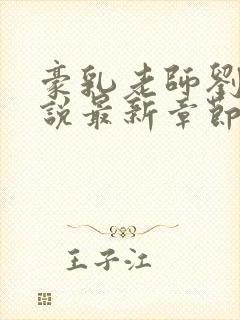 豪乳老師劉
說最新章節
王子江